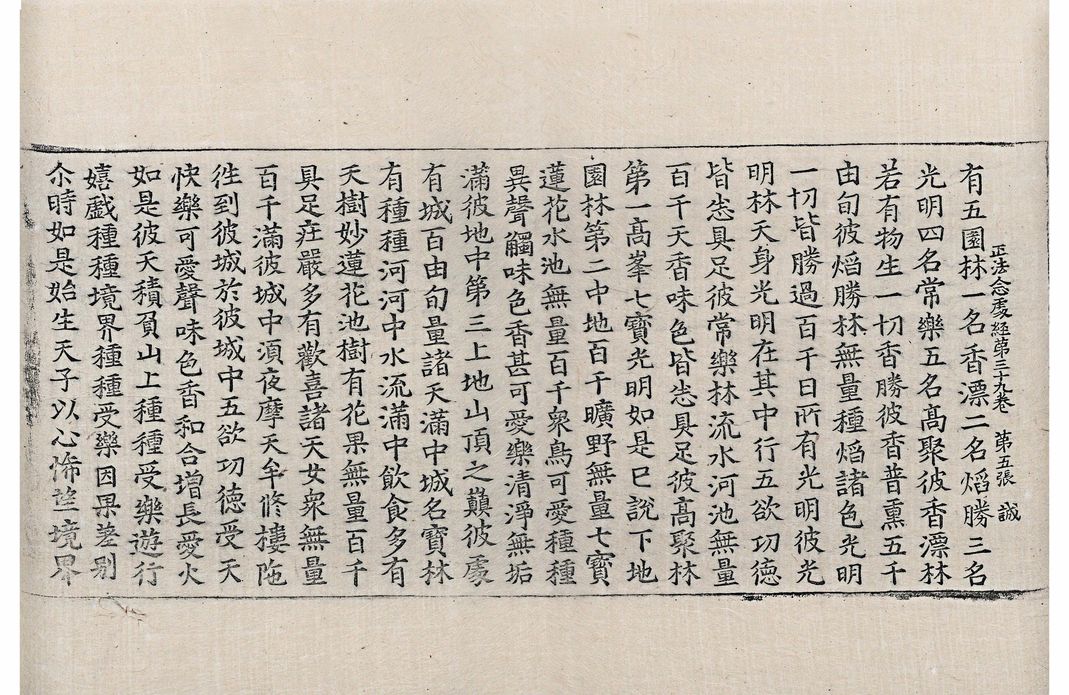 正法念處経第三十九巻 第五張 誠
有五園林一名香漂二名焰勝三名
光明四名常樂五名髙聚彼香漂林
若有物生一切香勝彼香普熏五千
由旬彼焰勝林無量種焰諸色光明
一切皆勝過百千日所有光明彼光
明林天身光明在其中行五欲功德
皆悉具足彼常樂林流水河池無量
百千天香味色皆悉具足彼髙聚林
第一髙峯七寶光明如是已說下地
園林第二中地百千曠野無量七寶
蓮花水池無量百千衆鳥可愛種種
異聲觸味色香甚可愛樂清淨無垢
滿彼地中第三上地山頂之巔彼處
有城百由旬量諸天滿中城名寶林
有種種河河中水流滿中飲食多有
天樹妙蓮花池樹有花果無量百千
具足莊嚴多有歡喜諸天女衆無量
百千滿彼城中須夜摩天牟修樓陁
徃到彼城於彼城中五欲功德受天
快樂可愛聲味色香和合增長愛火
如是彼天積負山上種種受樂遊行
嬉戱種種境界種種受樂因果差别
尒時如是始生天子以心悕望境界